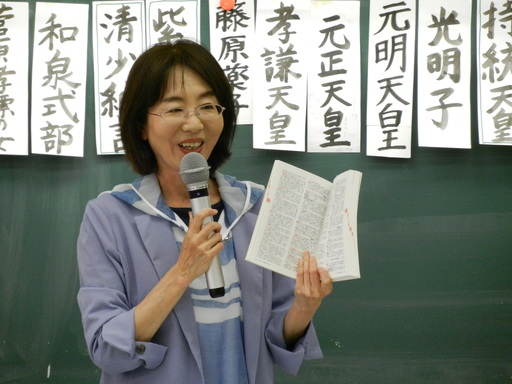 持統天
光明子
元明天皇
元正天皇
孝謙天皇
藤原薬子
紫
清少納言
和泉式部
菅原孝標の女